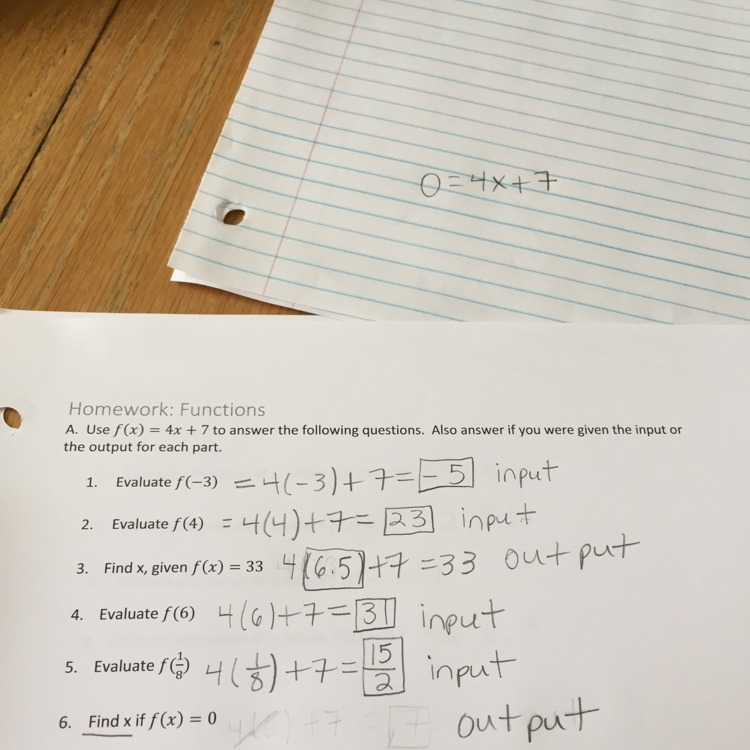 0=4x+7
Homework: Functions
A. Use f(x) = 4x + 7 to answer the following questions. Also answer if you were given the input or
the output for each part.
1. Evaluate f(−3) = 4(-3)+7= -5 input
2. Evaluate f(4) = 4(4)+7= 23 input
3. Find x, given f(x) = 33 4(6.5)+7=33 output
4. Evaluate f(6) 4(6)+7=31 input
5. Evaluate f(1/8) 4(1/8)+7=15/2 input
6. Find x if f(x) = 0 output